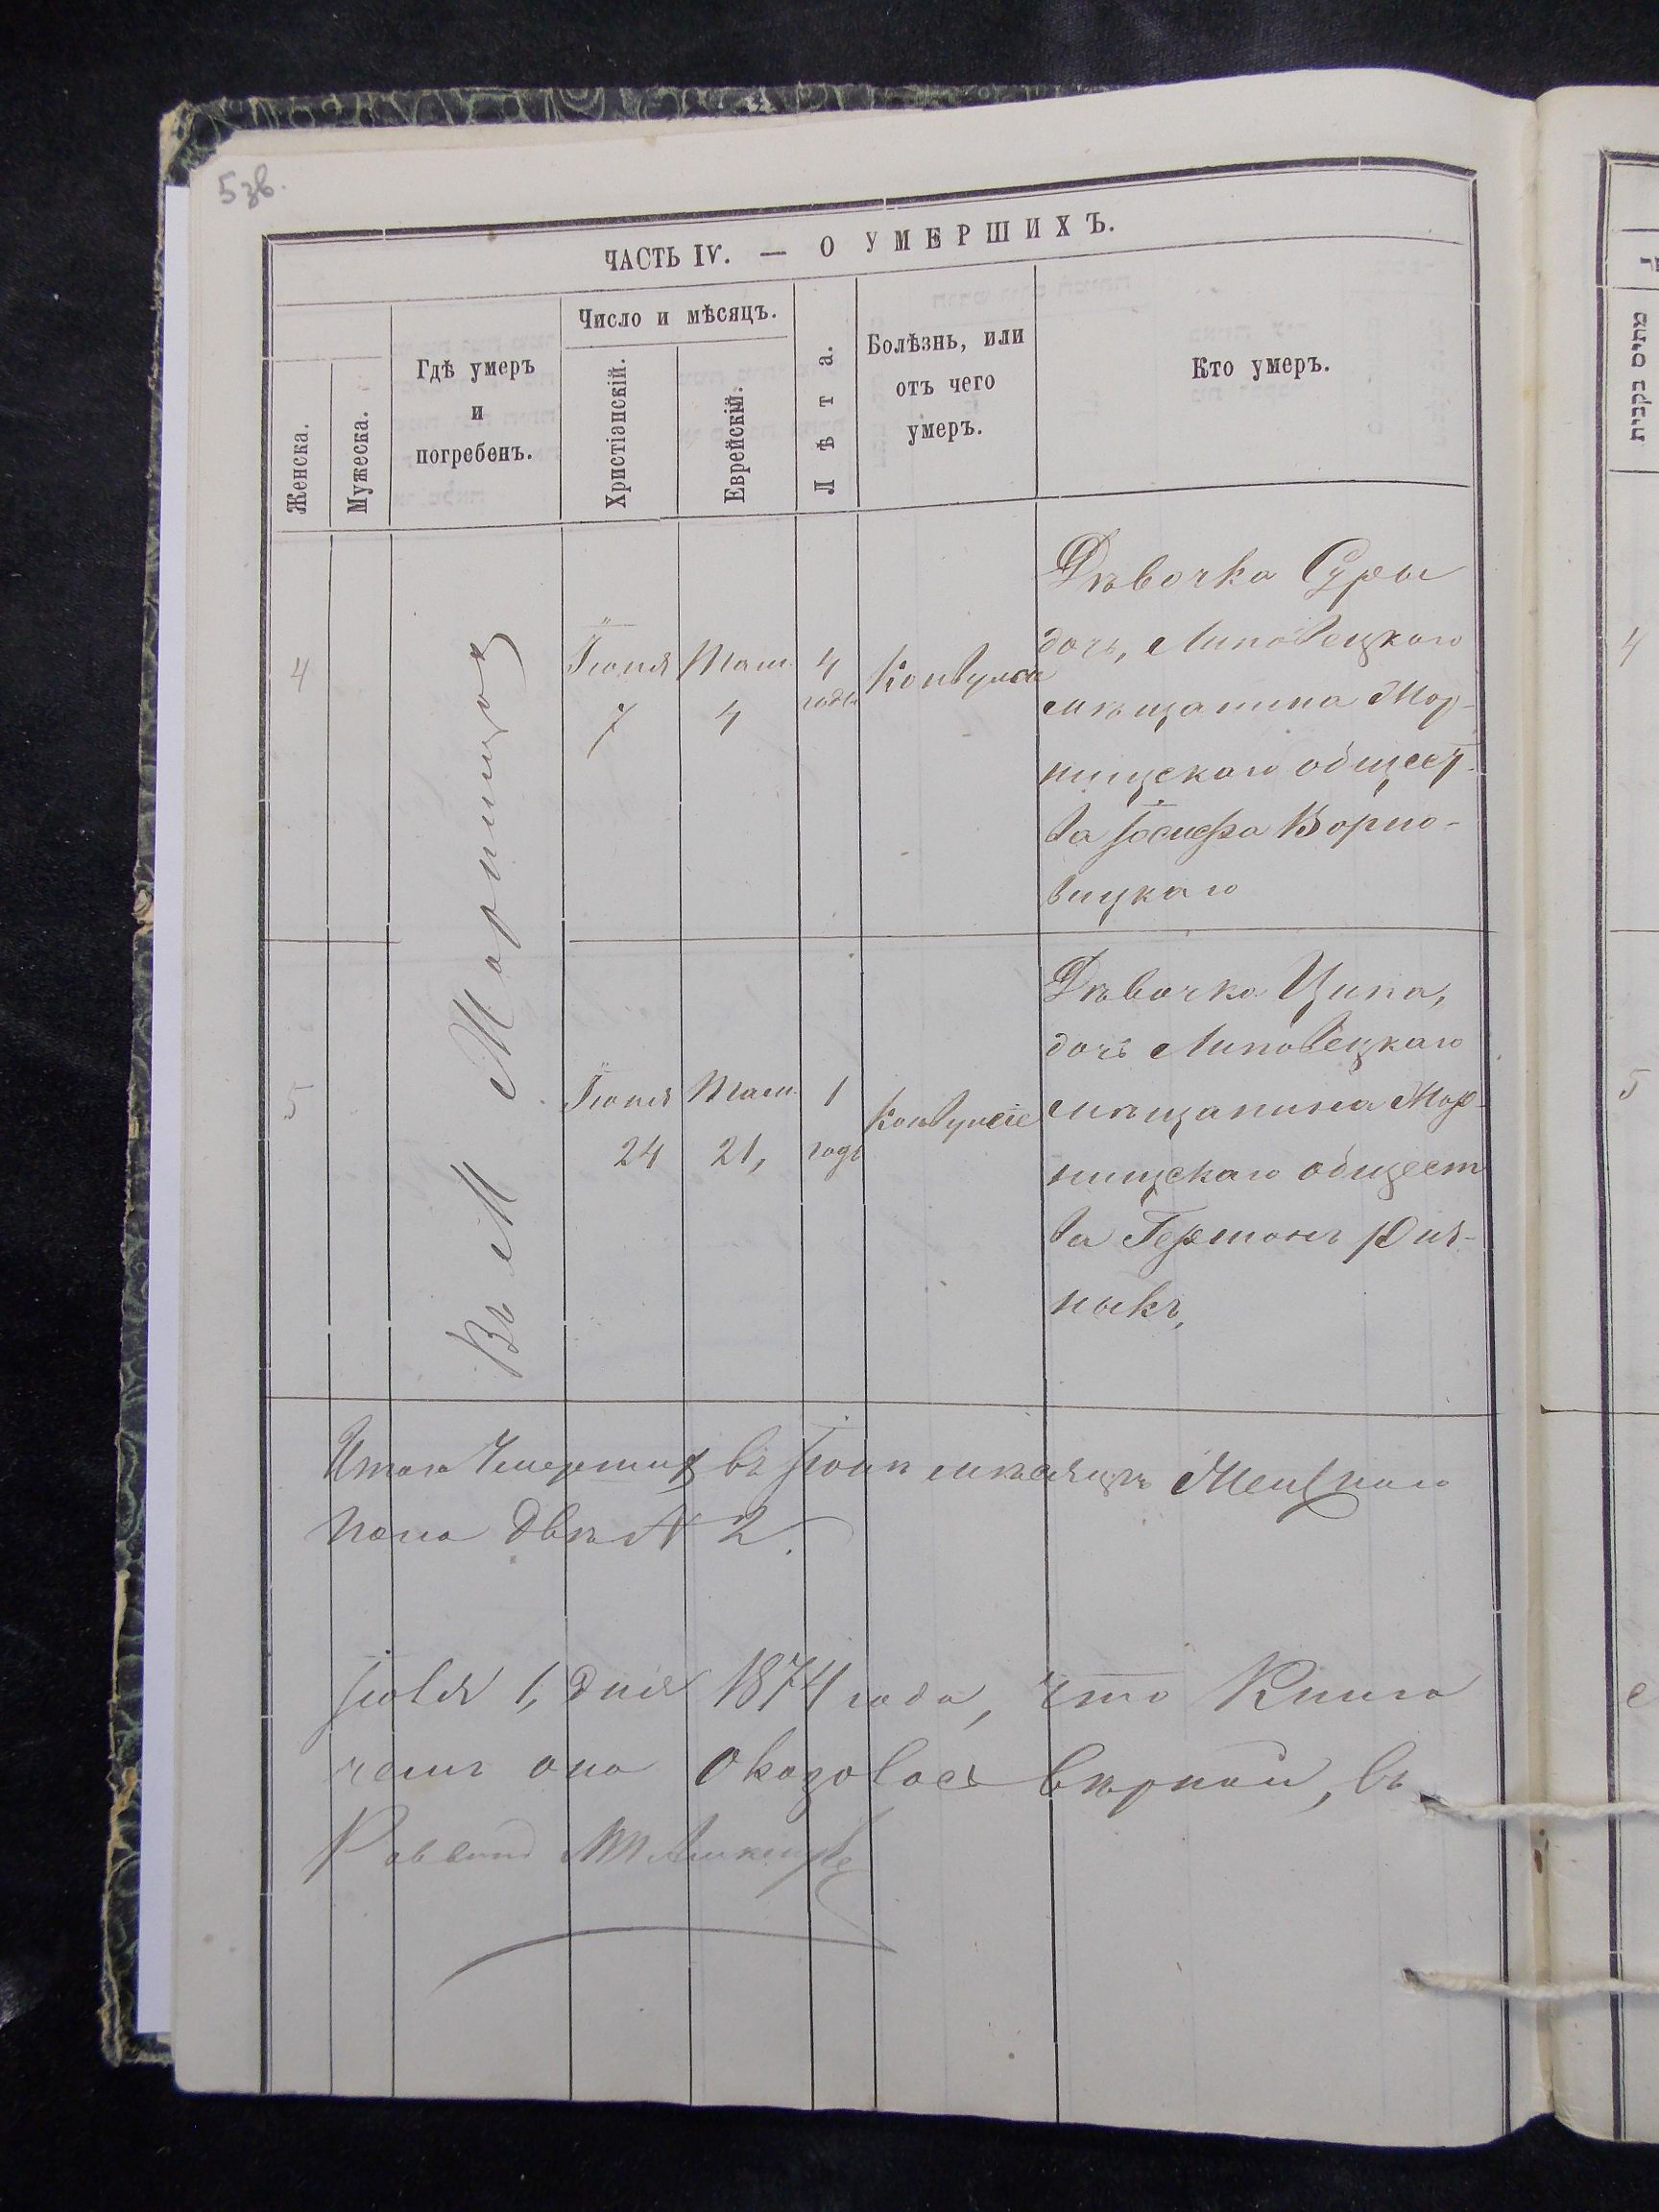 5зв.
ЧАСТЬ IV. — О УМЕРШИХЪ.
Женска.
Мужеска.
Гдѣ умеръ
и
погребенъ.
Число и мѣсяцъ.
Христіанскій.
Еврейскій.
Лѣта.
Болѣзнь, или
отъ чего
умеръ.
Кто умеръ.
4
Въ М Ворницѣ
Іюня
7
Там.
4
4
года
Конвульсіе
Дѣвочка Суры
дочь, Липовецкого
мѣщанина Мор-
ницскаго общест-
ва Іосифа Ворно-
вицкаго
5
Іюня
24
Там.
21,
1
годъ
Конвульсіе
Дѣвочка Ципа,
дочь Липовецкаго
мѣщанина Мор-
ницскаго общест
ва Гершонъ
ныкъ,
Итого Умершихъ въ Іюнѣ мѣсяцѣ Женскаго
пола двѣ № 2.
Іюля 1, дня 1874 года, что Книга
чемъ она оказолась вѣрной, въ
Раввинъ
מתים בקברות
4
5